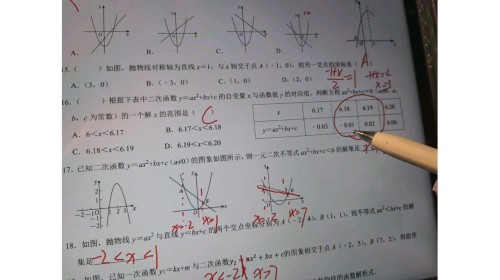 A. B. C. D.
15.（ ）如图，抛物线对称轴为直线x=1，与x轴交于点A（-1，0），则另一交点的坐标是（ A
A.（3，0） B.（-3，0） C.（1，0） D.（2，0）
-1+x/2=1 -1+x=2
x=3
16.（ ）根据下表中二次函数y=ax²+bx+c的自变量x与函数值y的对应值，判断方程ax²+bx+c=0
b，c为常数）的一个解x的范围是（ C
A. 6<x<6.17 B. 6.17<x<6.18
C. 6.18<x<6.19 D. 6.19<x<6.20
x 6.17 6.18 6.19 6.20
y=ax²+bx+c -0.03 -0.01 0.02 0.06
17. 已知二次函数y=ax²+bx+c（a≠0）的图象如图所示，则一元二次不等式ax²+bx+c<0的解集是
-2 -1 1 2 3 x
x=-2 x=1 x=-2 x=7
18. 如图，抛物线y=ax²与直线y=bx+c的两个交点坐标分别为A（-2，4），B（1，1），则不等式ax²<bx+c的解
集是 -2<x<1
如图，已知一次函数y₁=kx+m与二次函数y₂=ax²+bx+c的图象相交于点A（-2，5），B（7，2），则能使
x<-2 x>7
的函数解析式: